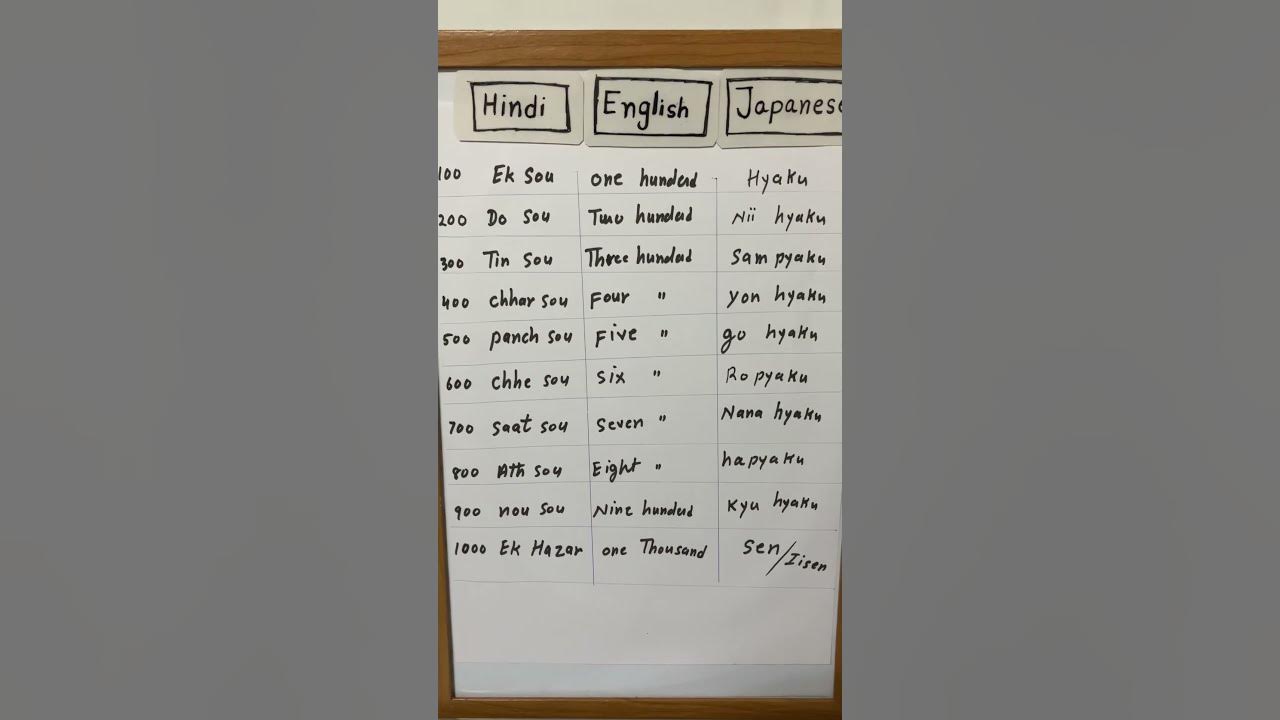 Hindi English Japanese
100 Ek Sou one hunderd Hyaku
200 Do Sou Two hunderd Nii hyaku
300 Tin Sou Three hunderd Sam pyaku
400 chhar sou Four " yon hyaku
500 panch sou Five " go hyaku
600 chhe sou Six " Ro pyaku
700 saat sou Seven " Nana hyaku
800 Ath sou Eight " hapyaku
900 nou sou Nine hunderd Kyu hyaku
1000 Ek Hazar one Thousand Sen/Iisen